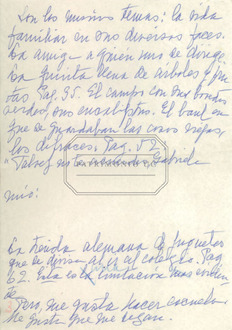 Son los mismos temas: la vida
familiar en sus diversas faces.
La amiga a quien uno se dirige.
La quinta llena de árboles y fru
tas Pag. 55. El campo con sus bordos
verdes, sus eucaliptus. El baul en
que se guardaban las cosas viejas,
los disfraces. Pag. 52
Gabriela
mis:
La tienda alemana de juguetes
que se divisa al ir al colegio. Pag
62. Esta es imitación mas evident
te.
Pero, me gusta hacer escuela.
Me gusta que me sigan.